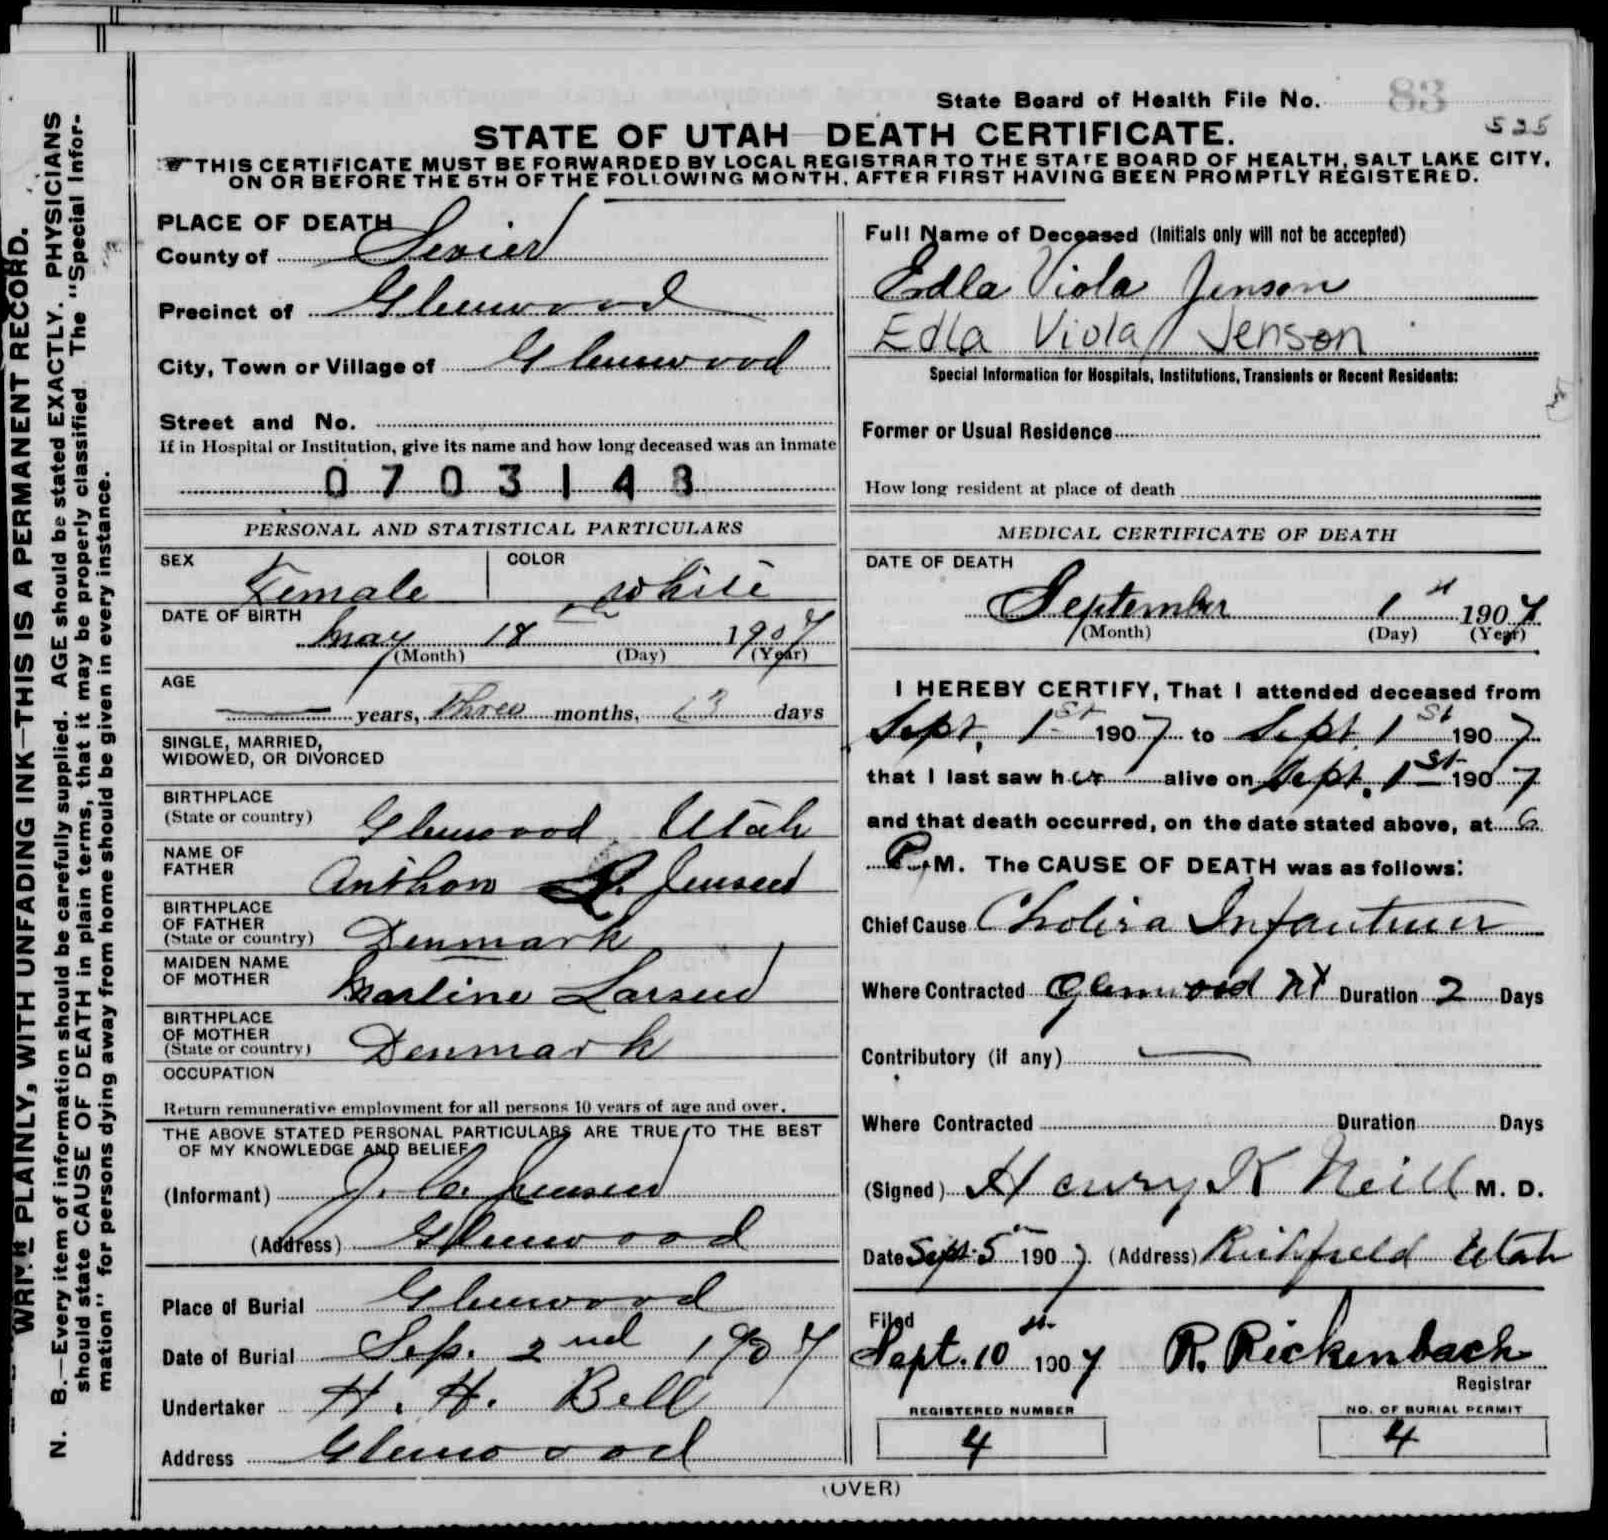 State Board of Health File No. 83
525
STATE OF UTAH DEATH CERTIFICATE.
THIS CERTIFICATE MUST BE FORWARDED BY LOCAL REGISTRAR TO THE STATE BOARD OF HEALTH, SALT LAKE CITY,
ON OR BEFORE THE 5TH OF THE FOLLOWING MONTH, AFTER FIRST HAVING BEEN PROMPTLY REGISTERED.
WRITE PLAINLY, WITH UNFADING INK—THIS IS A PERMANENT RECORD.
N. B.—Every item of information should be carefully supplied. AGE should be stated EXACTLY. PHYSICIANS
should state CAUSE OF DEATH in plain terms, that it may be properly classified. The "Special Infor-
mation" for persons dying away from home should be given in every instance.
PLACE OF DEATH
County of Sevier
Precinct of Glenwood
City, Town or Village of Glenwood
Street and No.
If in Hospital or Institution, give its name and how long deceased was an inmate
0703148
PERSONAL AND STATISTICAL PARTICULARS
SEX Female COLOR White
DATE OF BIRTH
May 18th 1907
(Month) (Day) (Year)
AGE
years, three months, 13 days
SINGLE, MARRIED,
WIDOWED, OR DIVORCED
BIRTHPLACE
(State or country) Glenwood Utah
NAME OF
FATHER Anthon L. Jensen
BIRTHPLACE
OF FATHER
(State or country) Denmark
MAIDEN NAME
OF MOTHER Martine Larsen
BIRTHPLACE
OF MOTHER
(State or country) Denmark
OCCUPATION
Return remunerative employment for all persons 10 years of age and over.
THE ABOVE STATED PERSONAL PARTICULARS ARE TRUE TO THE BEST
OF MY KNOWLEDGE AND BELIEF
(Informant) J. C. Jensen
(Address) Glenwood
Place of Burial Glenwood
Date of Burial Sep. 2nd 1907
Undertaker H. H. Bell
Address Glenwood
Full Name of Deceased (Initials only will not be accepted)
Edla Viola Jenson
Edla Viola Jenson
Special Information for Hospitals, Institutions, Transients or Recent Residents:
Former or Usual Residence
How long resident at place of death
MEDICAL CERTIFICATE OF DEATH
DATE OF DEATH
September 1st 1907
(Month) (Day) (Year)
I HEREBY CERTIFY, That I attended deceased from
Sept. 1st 1907 to Sept. 1st 1907
that I last saw her alive on Sept. 1st 1907
and that death occurred, on the date stated above, at 6
P. M. The CAUSE OF DEATH was as follows:
Chief Cause Cholira Infantum
Where Contracted Glenwood Ut Duration 2 Days
Contributory (if any)
Where Contracted Duration Days
(Signed) Henry K Neill M. D.
Date Sept. 5th 1907. (Address) Richfield Utah
Filed
Sept. 10th 1907 R. Rickenbach
Registrar
REGISTERED NUMBER
4
NO. OF BURIAL PERMIT
4
(OVER)